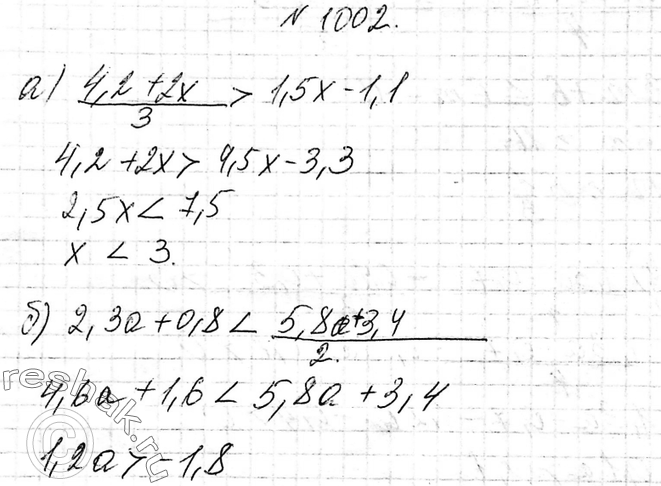 N 1002.
а) (4,2+2x)/3 > 1,5x-1,1
4,2+2x > 4,5x-3,3
2,5x < 7,5
x < 3.
б) 2,3a+0,8 < (5,8a+3,4)/2.
4,6a+1,6 < 5,8a+3,4
1,2a > -1,8
reshak.ru